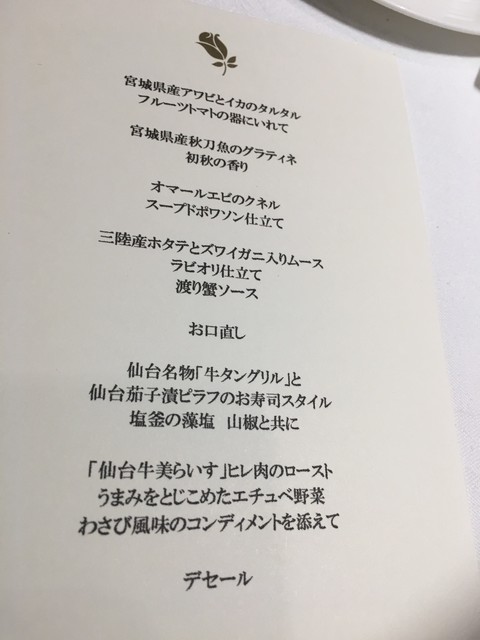 宮城県産アワビとイカのタルタル
フルーツトマトの器にいれて
宮城県産秋刀魚のグラティネ
初秋の香り
オマールエビのクネル
スープドポワソン仕立て
三陸産ホタテとズワイガニ入りムース
ラビオリ仕立て
渡り蟹ソース
お口直し
仙台名物「牛タングリル」と
仙台茄子漬ピラフのお寿司スタイル
塩釜の藻塩 山椒と共に
「仙台牛美らいす」ヒレ肉のロースト
うまみをとじこめたエチュベ野菜
わさび風味のコンディメントを添えて
デセール